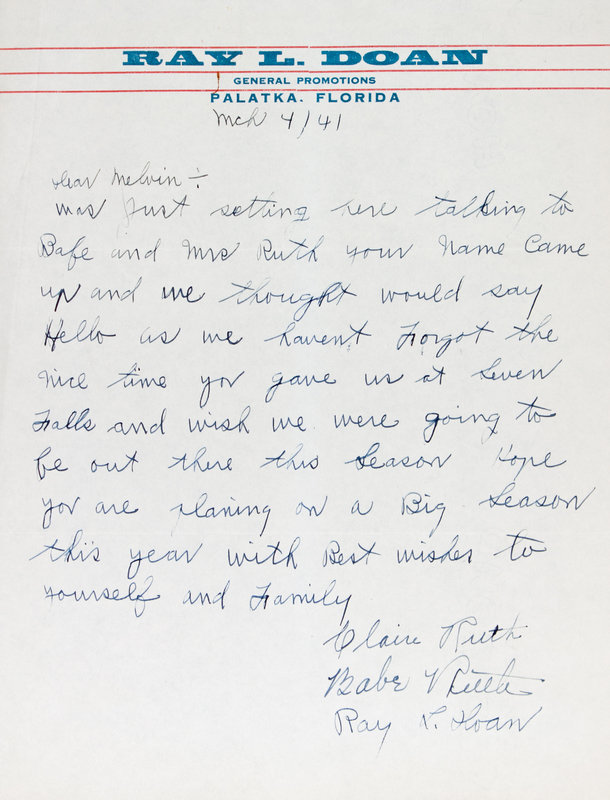 RAY L. DOAN
GENERAL PROMOTIONS
PALATKA, FLORIDA
Mch 4/41
Dear Melvin ÷
was Just setting here talking to
Babe and Mrs Ruth your Name Came
up and we thought would say
Hello as we havent Forgot the
Nice time you gave us at Seven
Falls and wish we were going to
be out there this Season Hope
you are planing on a Big Season
this year with Best wishes to
yourself and Family
Claire Ruth
Babe Ruth
Ray L. Doan